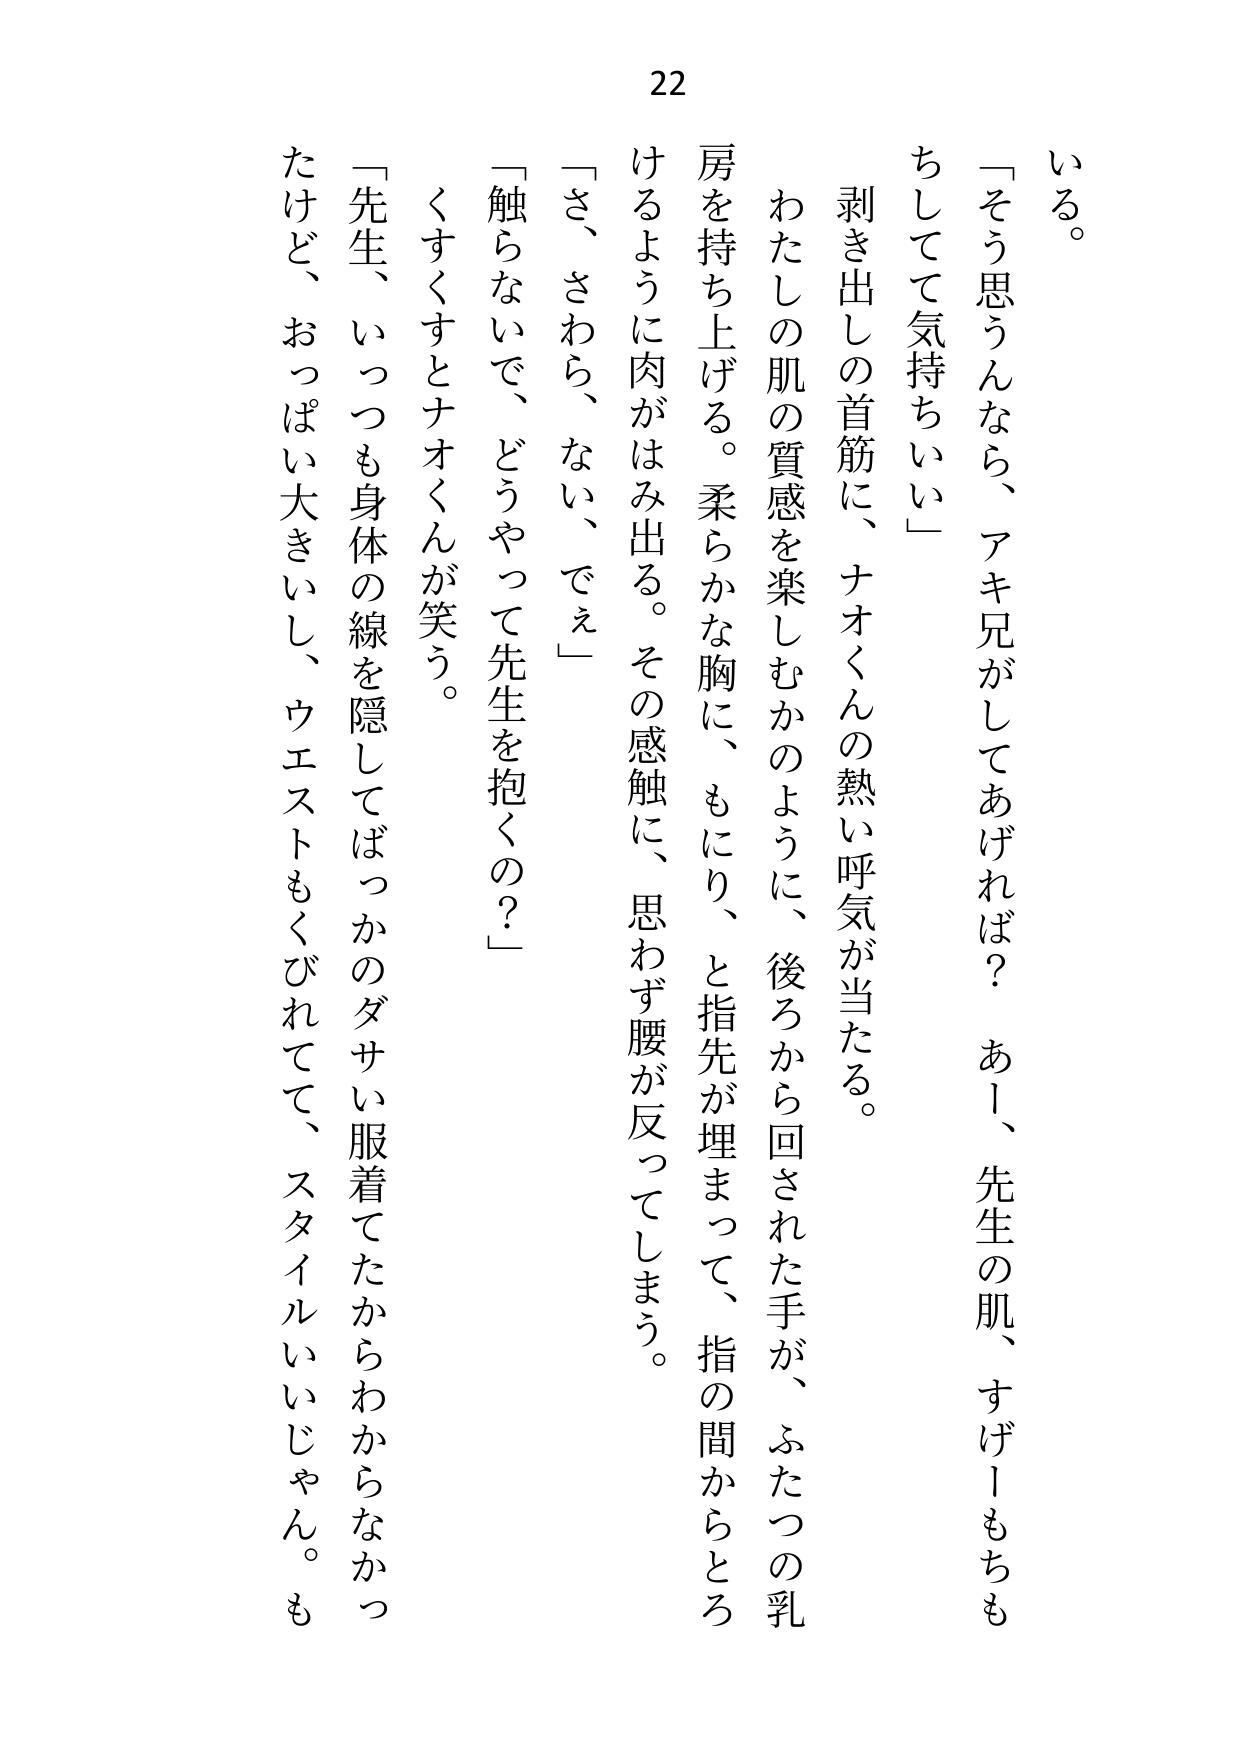 22
いる。
「そう思うんなら、アキ兄がしてあげれば？　あー、先生の肌、すげーもちも
ちしてて気持ちいい」
　剥き出しの首筋に、ナオくんの熱い呼気が当たる。
　わたしの肌の質感を楽しむかのように、後ろから回された手が、ふたつの乳
房を持ち上げる。柔らかな胸に、もにり、と指先が埋まって、指の間からとろ
けるように肉がはみ出る。その感触に、思わず腰が反ってしまう。
「さ、さわら、ない、でぇ」
「触らないで、どうやって先生を抱くの？」
　くすくすとナオくんが笑う。
「先生、いっつも身体の線を隠してばっかのダサい服着てたからわからなかっ
たけど、おっぱい大きいし、ウエストもくびれてて、スタイルいいじゃん。も